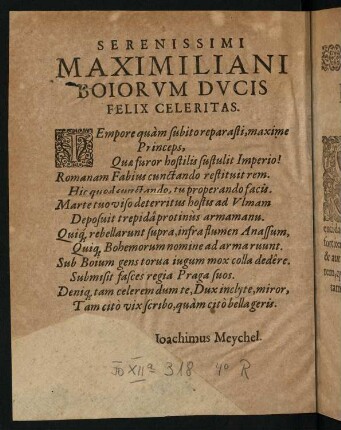 SERENISSIMI
MAXIMILIANI
BOIORVM DVCIS
FELIX CELERITAS.
TEmpore quàm subito reparasti, maxime
Princeps,
Quæ furor hostilis sustulit Imperio!
Romanam Fabius cunctando restituit rem.
Hic quod cunctando, tu properando facis.
Marte tuo viso deterritus hostis ad Vlmam
Deposuit trepidâ protinus arma manu.
Quiq, rebellarunt supra, infra flumen Anassum,
Quiq, Bohemorum nomine ad arma ruunt.
Sub Boium gens torua iugum mox colla dedêre.
Submisit fasces regia Praga suos.
Deniq, tam celerem dum te, Dux inclyte, miror,
Tam citò vix scribo, quàm citò bella geris.
Ioachimus Meychel.
318 4° R